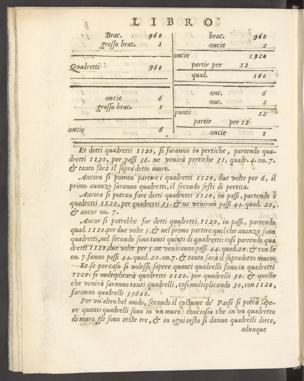 LIBRO
Brac. 960
grosso brac. 1
Quadretti 960
oncie 6
grosso brac. 1
oncie 6
brac. 960
oncie 2
oncie 1920
partir per 12
quad. 160
onc. 6
onc. 2
punti 12
partir per 12
oncie 1
Et detti quadretti 1120, si faranno in pertiche, partendo qua-
dretti 1120, per passi 36. ne venirà pertiche 31, quadr. 4. on. 7.
& tanto sarà il sopra detto muro.
Ancora si potran partire i quadretti 1120, due volte per 6, il
primo auanzo saranno quadretti, il secondo sesti di pertica.
Ancora si potran fare detti quadretti 1120, in passi, partendo i
quadretti 1120, per quadretti 25. & ne veniranno passi 44. quad. 20,
& ancor on. 7.
Ancor si potrebbe far detti quadretti, 1120, in passi, partendo
quad. 1120. per due volte 5, & nel primo partire quel che auanza sono
quadretti, nel secondo sono tanti quinti di quadretti: così partendo qua
dretti 1120, due volte per 5. ne veniranno passi 44. quad. 20. & con le
on. 7. sanno passi 44. quad. 20. on. 7. & tanto sarà il sopradetto muro.
Et se per caso si volesse sapere quanti quadrelli sono in quadretti
1120. se multiplicarà quadretti 1120. per quadrelli 30. & quello
che venirà saranno tanti quadrelli, così multiplicando 30, con 1120,
saranno quadrelli 33600.
Per vn'altro bel modo, secondo il costume de' Paesi si potrà sape-
re quanti quadrelli sono in vn muro: conciosia che in vn quadretto
di muro gli sono teste tre, & in ogni testa si danno quadrelli diece,
adunque